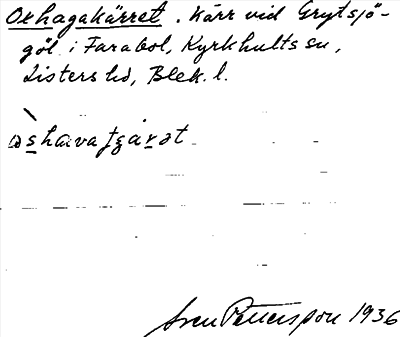 Oxhagakärret. Kärr vid Grytsjö-
göl i Farabol, Kyrkhults sn,
Listers hd, Blek. l.
Sven Pettersson 1936